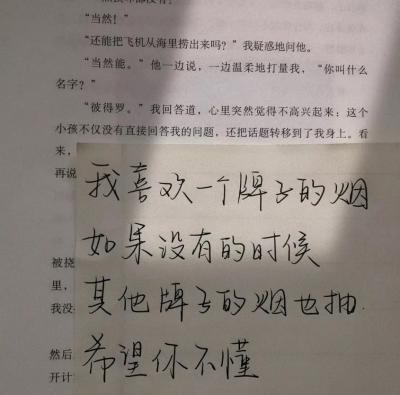 “当然！”
“还能把飞机从海里捞出来吗？”我疑惑地问他。
“当然能。”他一边说，一边温柔地打量我，“你叫什么
名字？”
“彼得罗。”我回答道，心里突然觉得不高兴起来；这个
小孩不仅没有直接回答我的问题，还把话题转移到了我身上。看
来，
再说
我喜欢一个牌子的烟
如果没有的时候
被挠
里，
其他牌子的烟也抽.
我没
然后
希望你不懂
开计